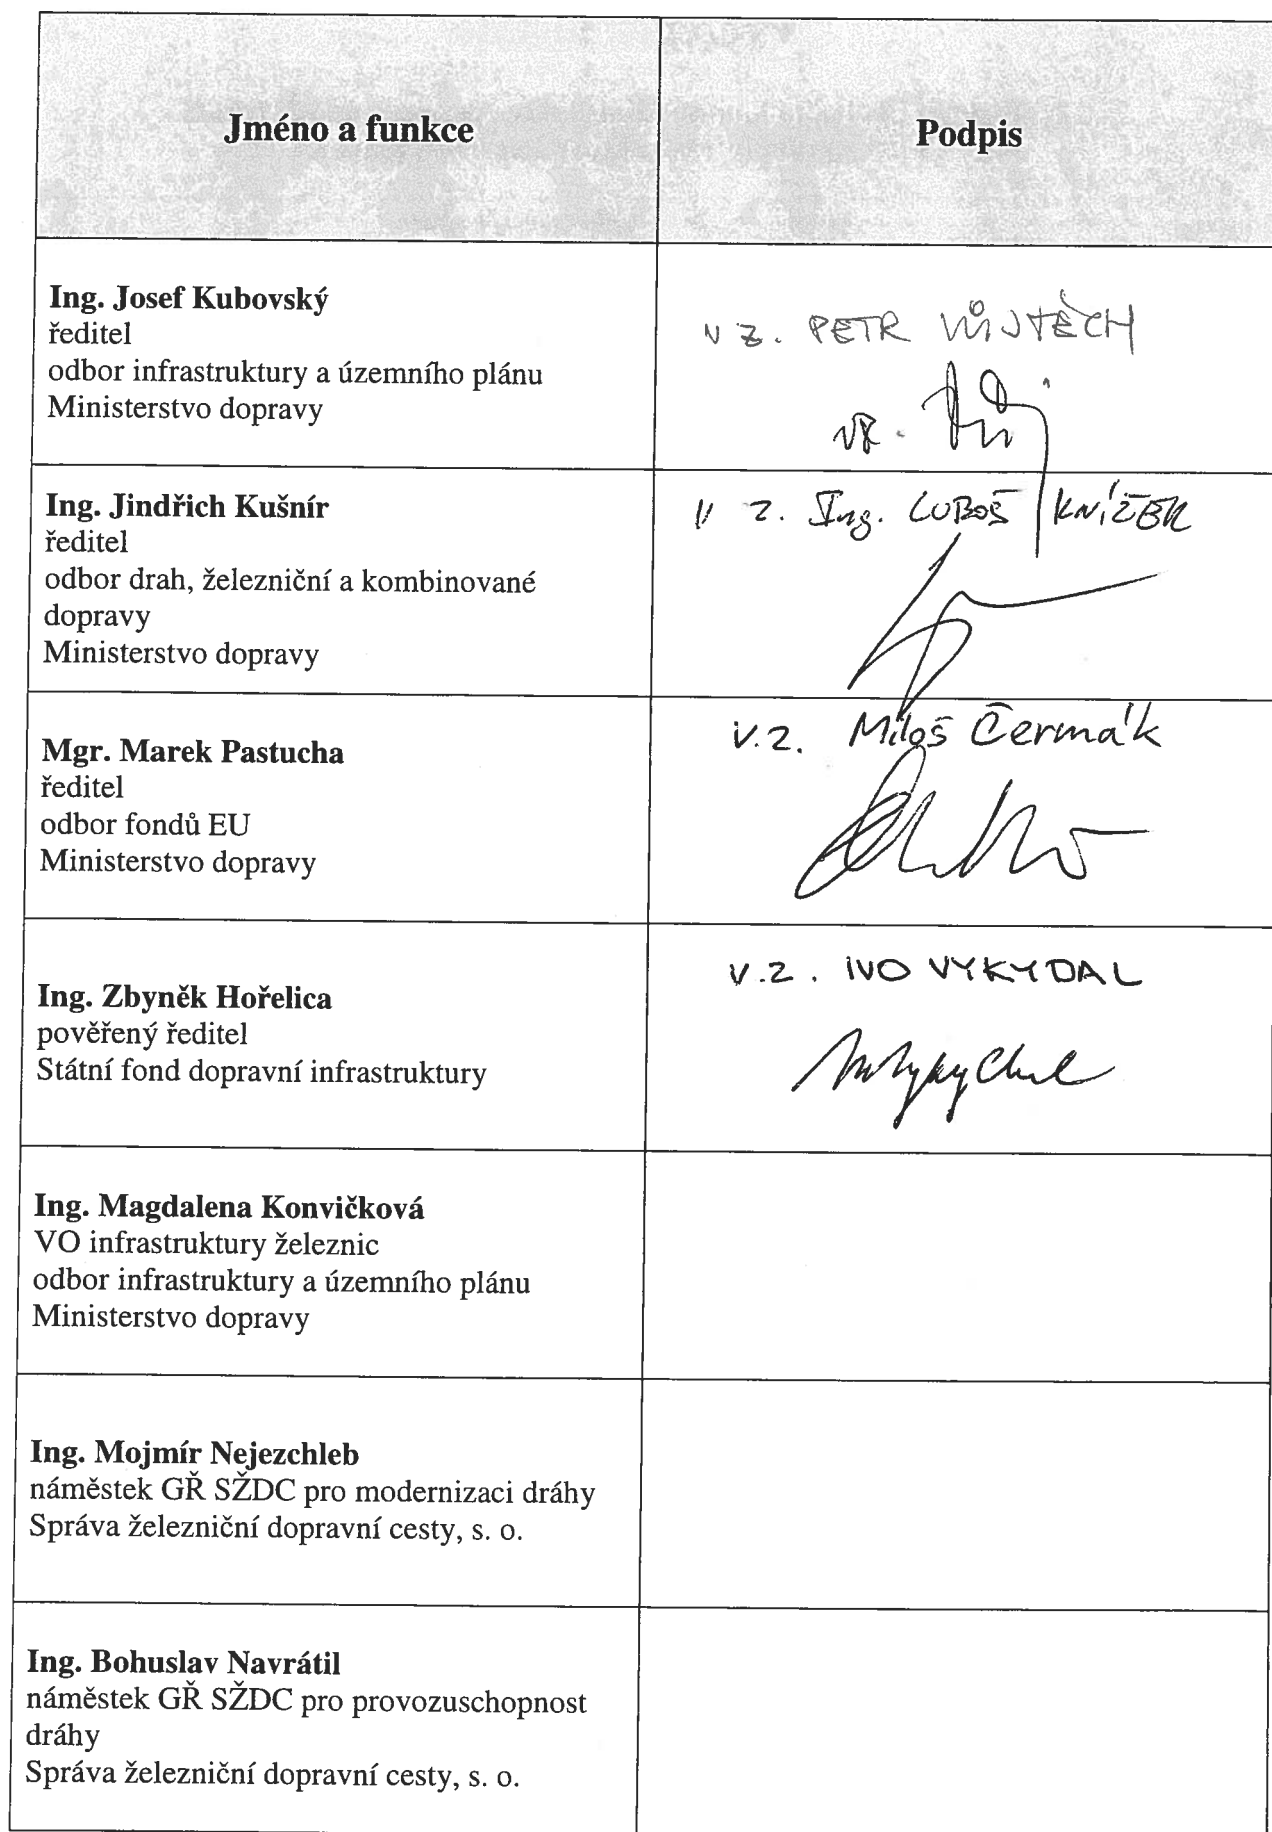 Jméno a funkce
Podpis
Ing. Josef Kubovský
ředitel
odbor infrastruktury a územního plánu
Ministerstvo dopravy
v z. PETR VŮJTĚCH
Ing. Jindřich Kušnír
ředitel
odbor drah, železniční a kombinované
dopravy
Ministerstvo dopravy
v z. Ing. LUBOŠ KNÍŽEK
Mgr. Marek Pastucha
ředitel
odbor fondů EU
Ministerstvo dopravy
v.z. Miloš Čermák
Ing. Zbyněk Hořelica
pověřený ředitel
Státní fond dopravní infrastruktury
v.z. IVO VYKYDAL
Ing. Magdalena Konvičková
VO infrastruktury železnic
odbor infrastruktury a územního plánu
Ministerstvo dopravy
Ing. Mojmír Nejezchleb
náměstek GŘ SŽDC pro modernizaci dráhy
Správa železniční dopravní cesty, s. o.
Ing. Bohuslav Navrátil
náměstek GŘ SŽDC pro provozuschopnost
dráhy
Správa železniční dopravní cesty, s. o.